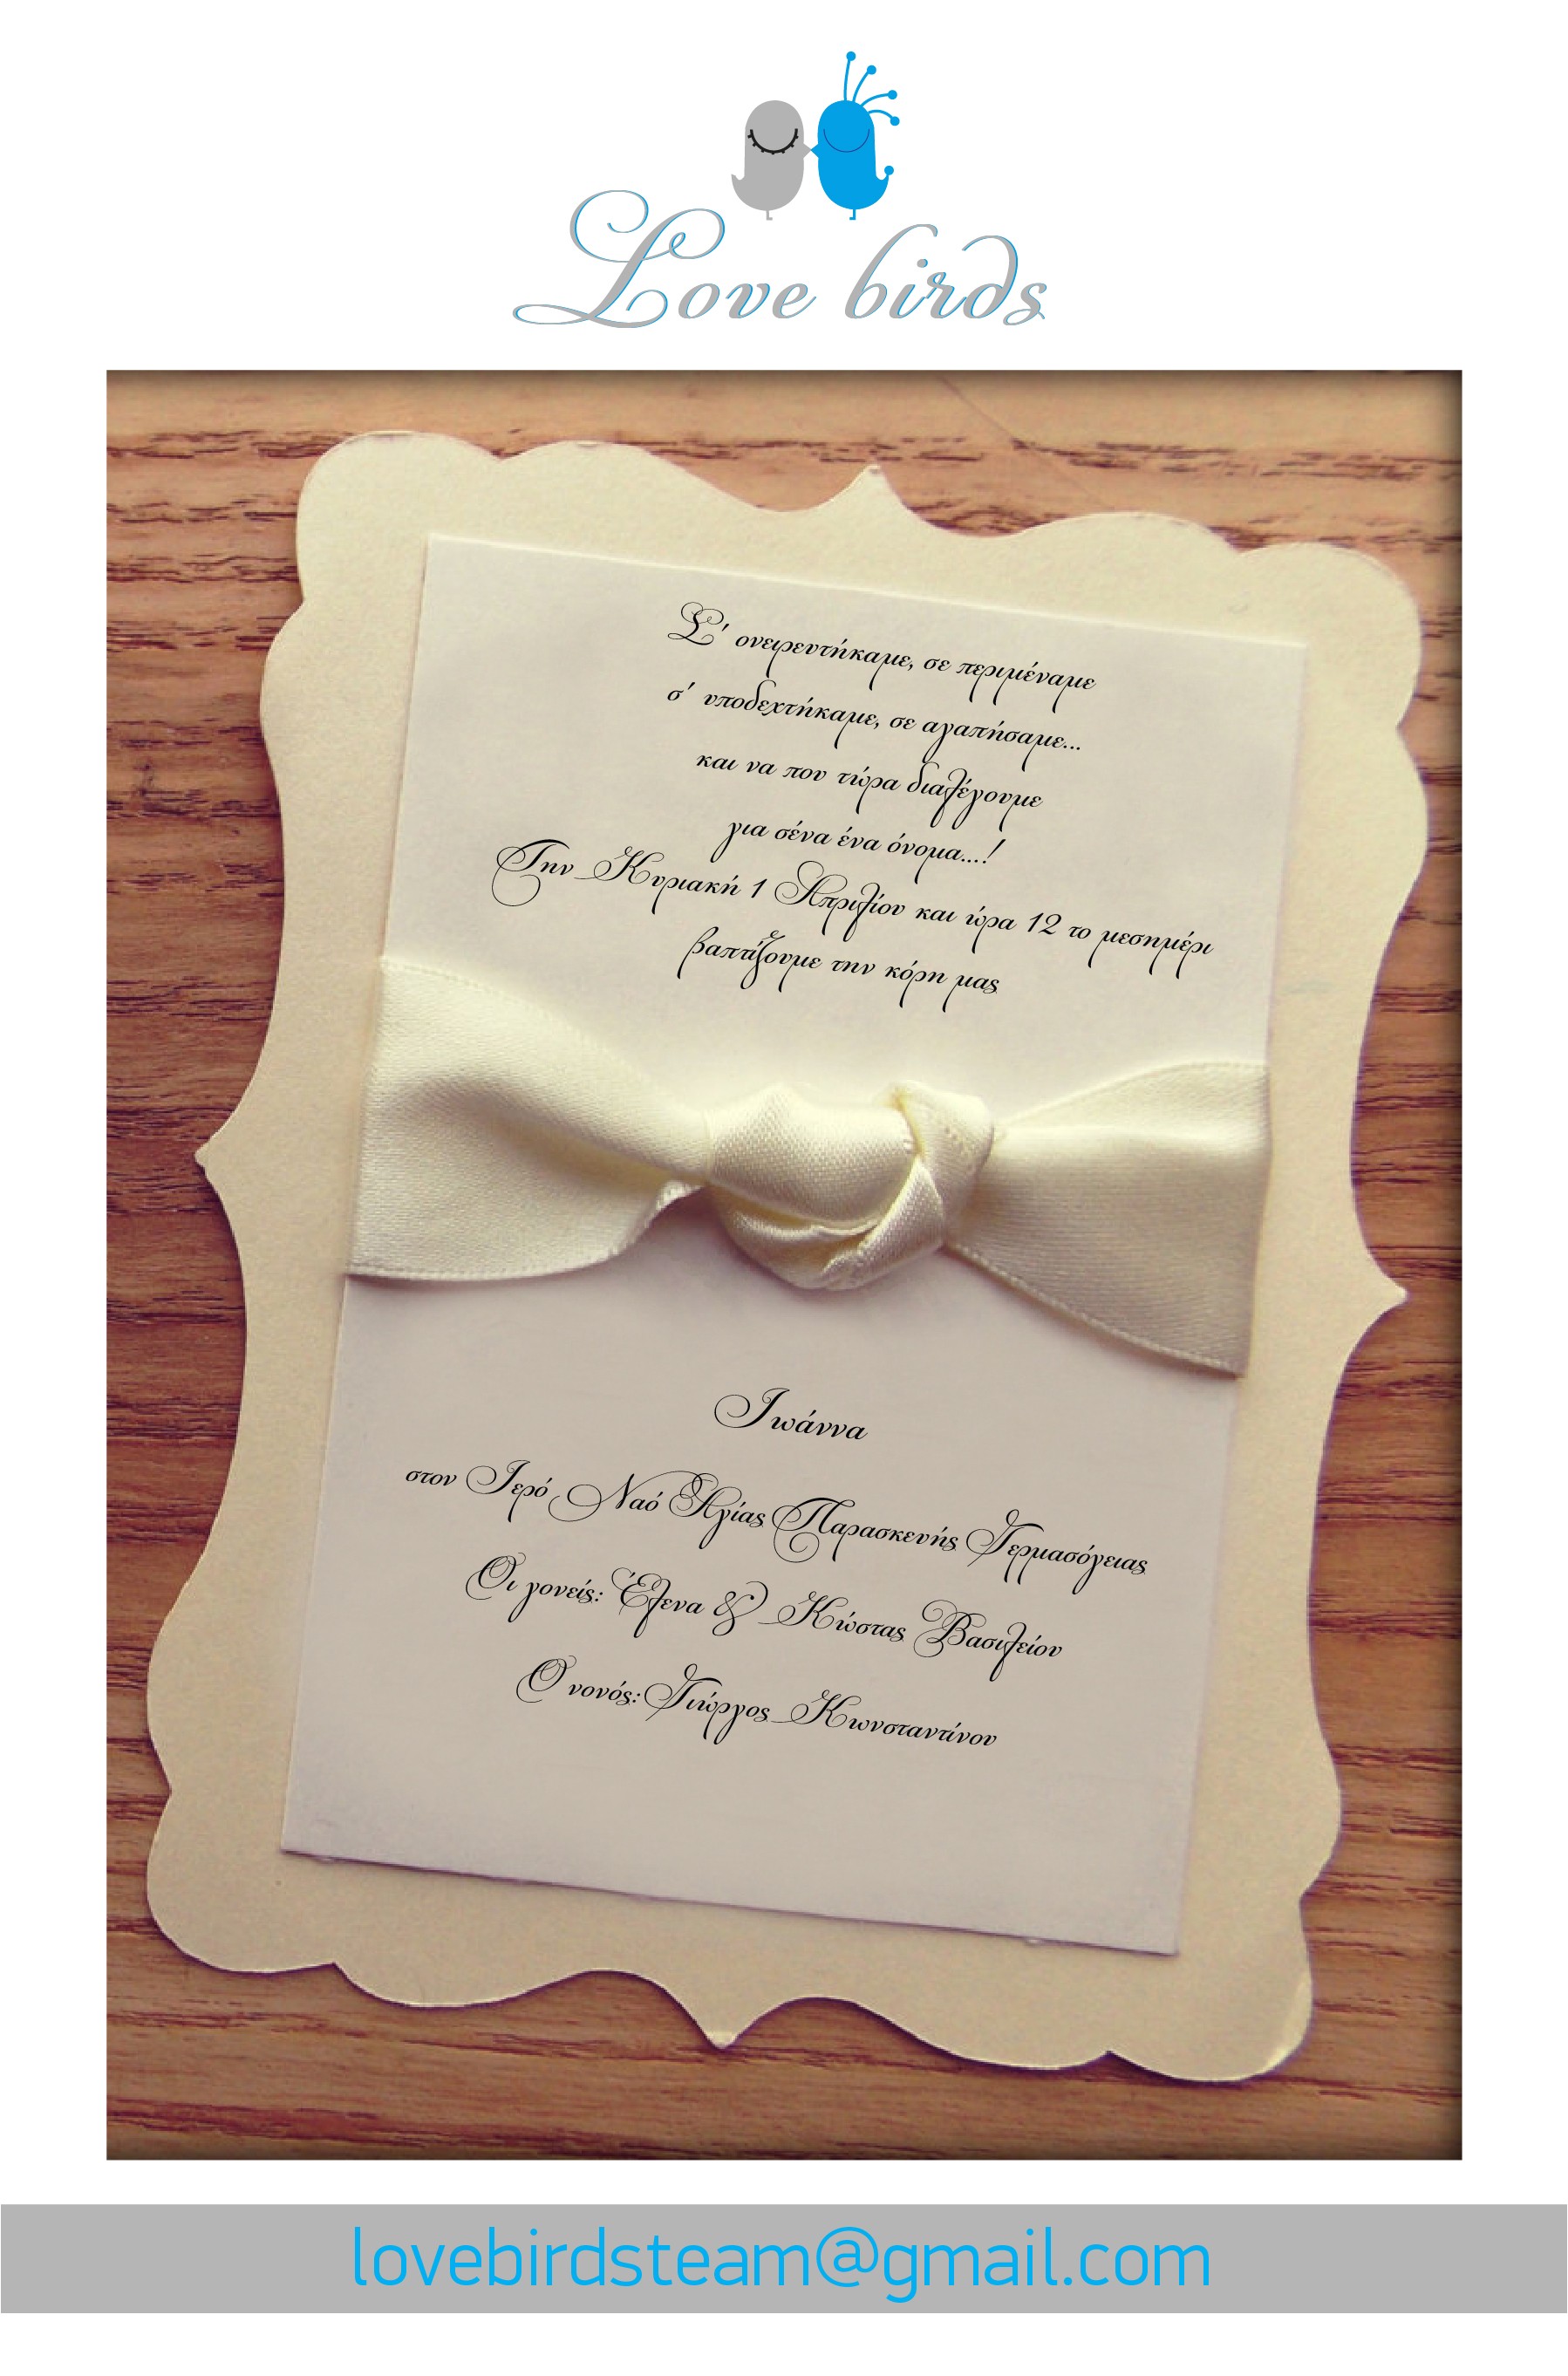 Love birds
Σ' ονειρευτήκαμε, σε περιμέναμε
σ' υποδεχτήκαμε, σε αγαπήσαμε...
και να που τώρα διαλέγουμε
για σένα ένα όνομα...!
Την Κυριακή 1 Απριλίου και ώρα 12 το μεσημέρι
βαπτίζουμε την κόρη μας
Ιωάννα
στον Ιερό Ναό Αγίας Παρασκευής Γερμασόγειας
Οι γονείς: Έλενα & Κώστας Βασιλείου
Ο νονός: Γιώργος Κωνσταντίνου
lovebirdsteam@gmail.com